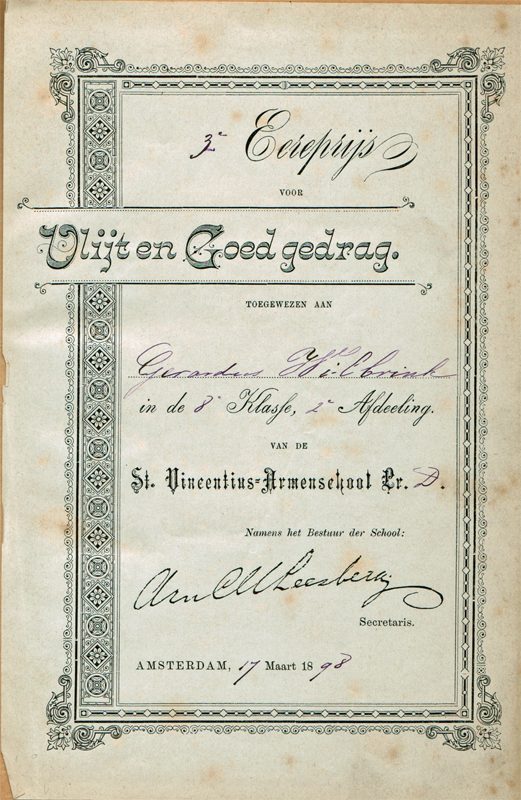 3e Eereprijs
VOOR
Vlijt en Goed gedrag.
TOEGEWEZEN AAN
Gerardus Wilbrink
in de 8e Klasse, 2e Afdeeling.
VAN DE
St. Vincentius=Armenschool Lr. D.
Namens het Bestuur der School:
Secretaris.
AMSTERDAM, 17 Maart 1898